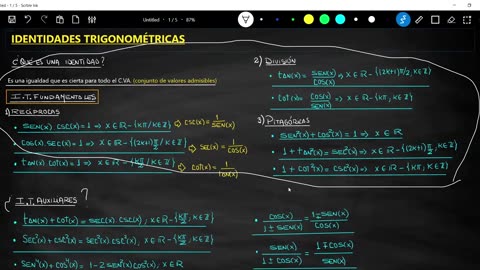 Untitled - 1 / 5 - 87%
IDENTIDADES TRIGONOMÉTRICAS
¿QUÉ ES UNA IDENTIDAD?
Es una igualdad que es cierta para todo el C.VA. (conjunto de valores admisibles)
I.T. FUNDAMENTALES
1) RECÍPROCAS
• SEN(x) CSC(x) = 1 ⇒ x ∈ ℝ - {Kπ / K∈ℤ} ⇨ CSC(x) = 1/SEN(x)
• COS(x) . SEC(x) = 1 ⇒ x ∈ ℝ - {(2K+1)π/2 / K∈ℤ} ⇨ SEC(x) = 1/COS(x)
• tan(x) Cot(x) = 1 ⇒ x ∈ ℝ - {Kπ/2 / K∈ℤ} ⇨ Cot(x) = 1/tan(x)
2) DIVISIÓN
• tan(x) = SEN(x)/COS(x) ⇒ x ∈ ℝ - {(2K+1)π/2, K∈ℤ}
• Cot(x) = COS(x)/SEN(x) ⇒ x ∈ ℝ - {Kπ, K∈ℤ}
3) PITAGÓRICAS
• SEN²(x) + COS²(x) = 1 ⇒ x ∈ ℝ
• 1 + tan²(x) = SEC²(x) ⇒ x ∈ ℝ - {(2K+1)π/2, K∈ℤ}
• 1 + Cot²(x) = CSC²(x) ⇒ x ∈ ℝ - {Kπ, K∈ℤ}
¿ I.T. AUXILIARES ?
• tan(x) + Cot(x) = SEC(x) CSC(x), x ∈ ℝ - {Kπ/2, K∈ℤ}
• SEC²(x) + CSC²(x) = SEC²(x) CSC²(x), x ∈ ℝ - {Kπ/2, K∈ℤ}
• SEN⁴(x) + COS⁴(x) = 1 - 2 SEN²(x) COS²(x), x ∈ ℝ
• COS(x)/1 ± SEN(x) = 1 ∓ SEN(x)/COS(x)
• SEN(x)/1 ± COS(x) = 1 ∓ COS(x)/SEN(x)